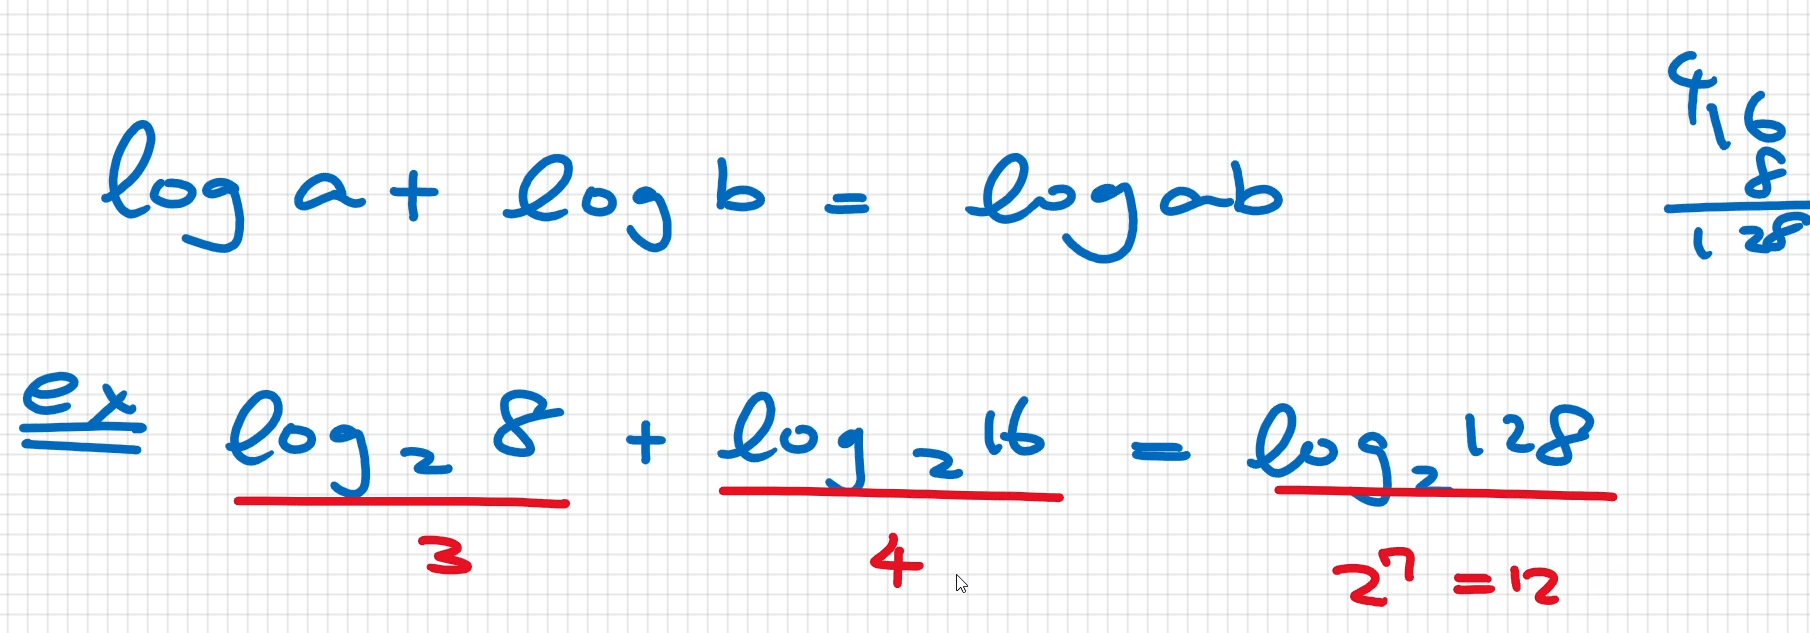 log a + log b = log ab
4
16
8
128
ex log₂ 8 + log₂ 16 = log₂ 128
3 4 2⁷ = 12